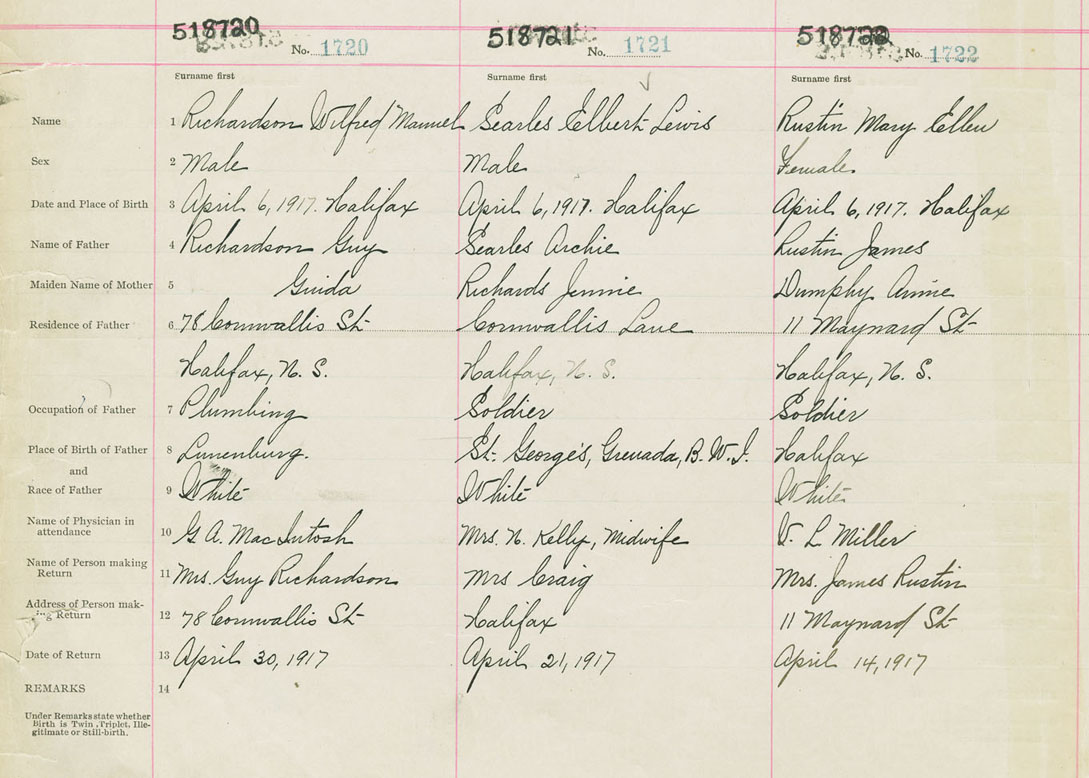 518720 518721 518722
No. 1720 No. 1721 No. 1722
Surname first Surname first Surname first
Name 1 Richardson Wilfred Manuel Searles Elbert Lewis Rustin Mary Ellen
Sex 2 Male Male Female
Date and Place of Birth 3 April 6, 1917. Halifax April 6, 1917. Halifax April 6, 1917. Halifax
Name of Father 4 Richardson Guy Searles Archie Rustin James
Maiden Name of Mother 5 Guida Richards Jennie Dumphy Annie
Residence of Father 6 78 Cornwallis St Cornwallis Lane 11 Maynard St
Halifax, N. S. Halifax, N. S. Halifax, N. S.
Occupation of Father 7 Plumbing Soldier Soldier
Place of Birth of Father 8 Lunenburg. St. George's, Grenada, B. W. I. Halifax
and
Race of Father 9 White White White
Name of Physician in
attendance 10 G. A. MacIntosh Mrs. N. Kelly, Midwife V. L Miller
Name of Person making
Return 11 Mrs. Guy Richardson Mrs Craig Mrs. James Rustin
Address of Person mak-
ing Return 12 78 Cornwallis St Halifax 11 Maynard St
Date of Return 13 April 30, 1917 April 21, 1917 April 14, 1917
REMARKS 14
Under Remarks state whether
Birth is Twin, Triplet, Ille-
gitimate or Still-birth.